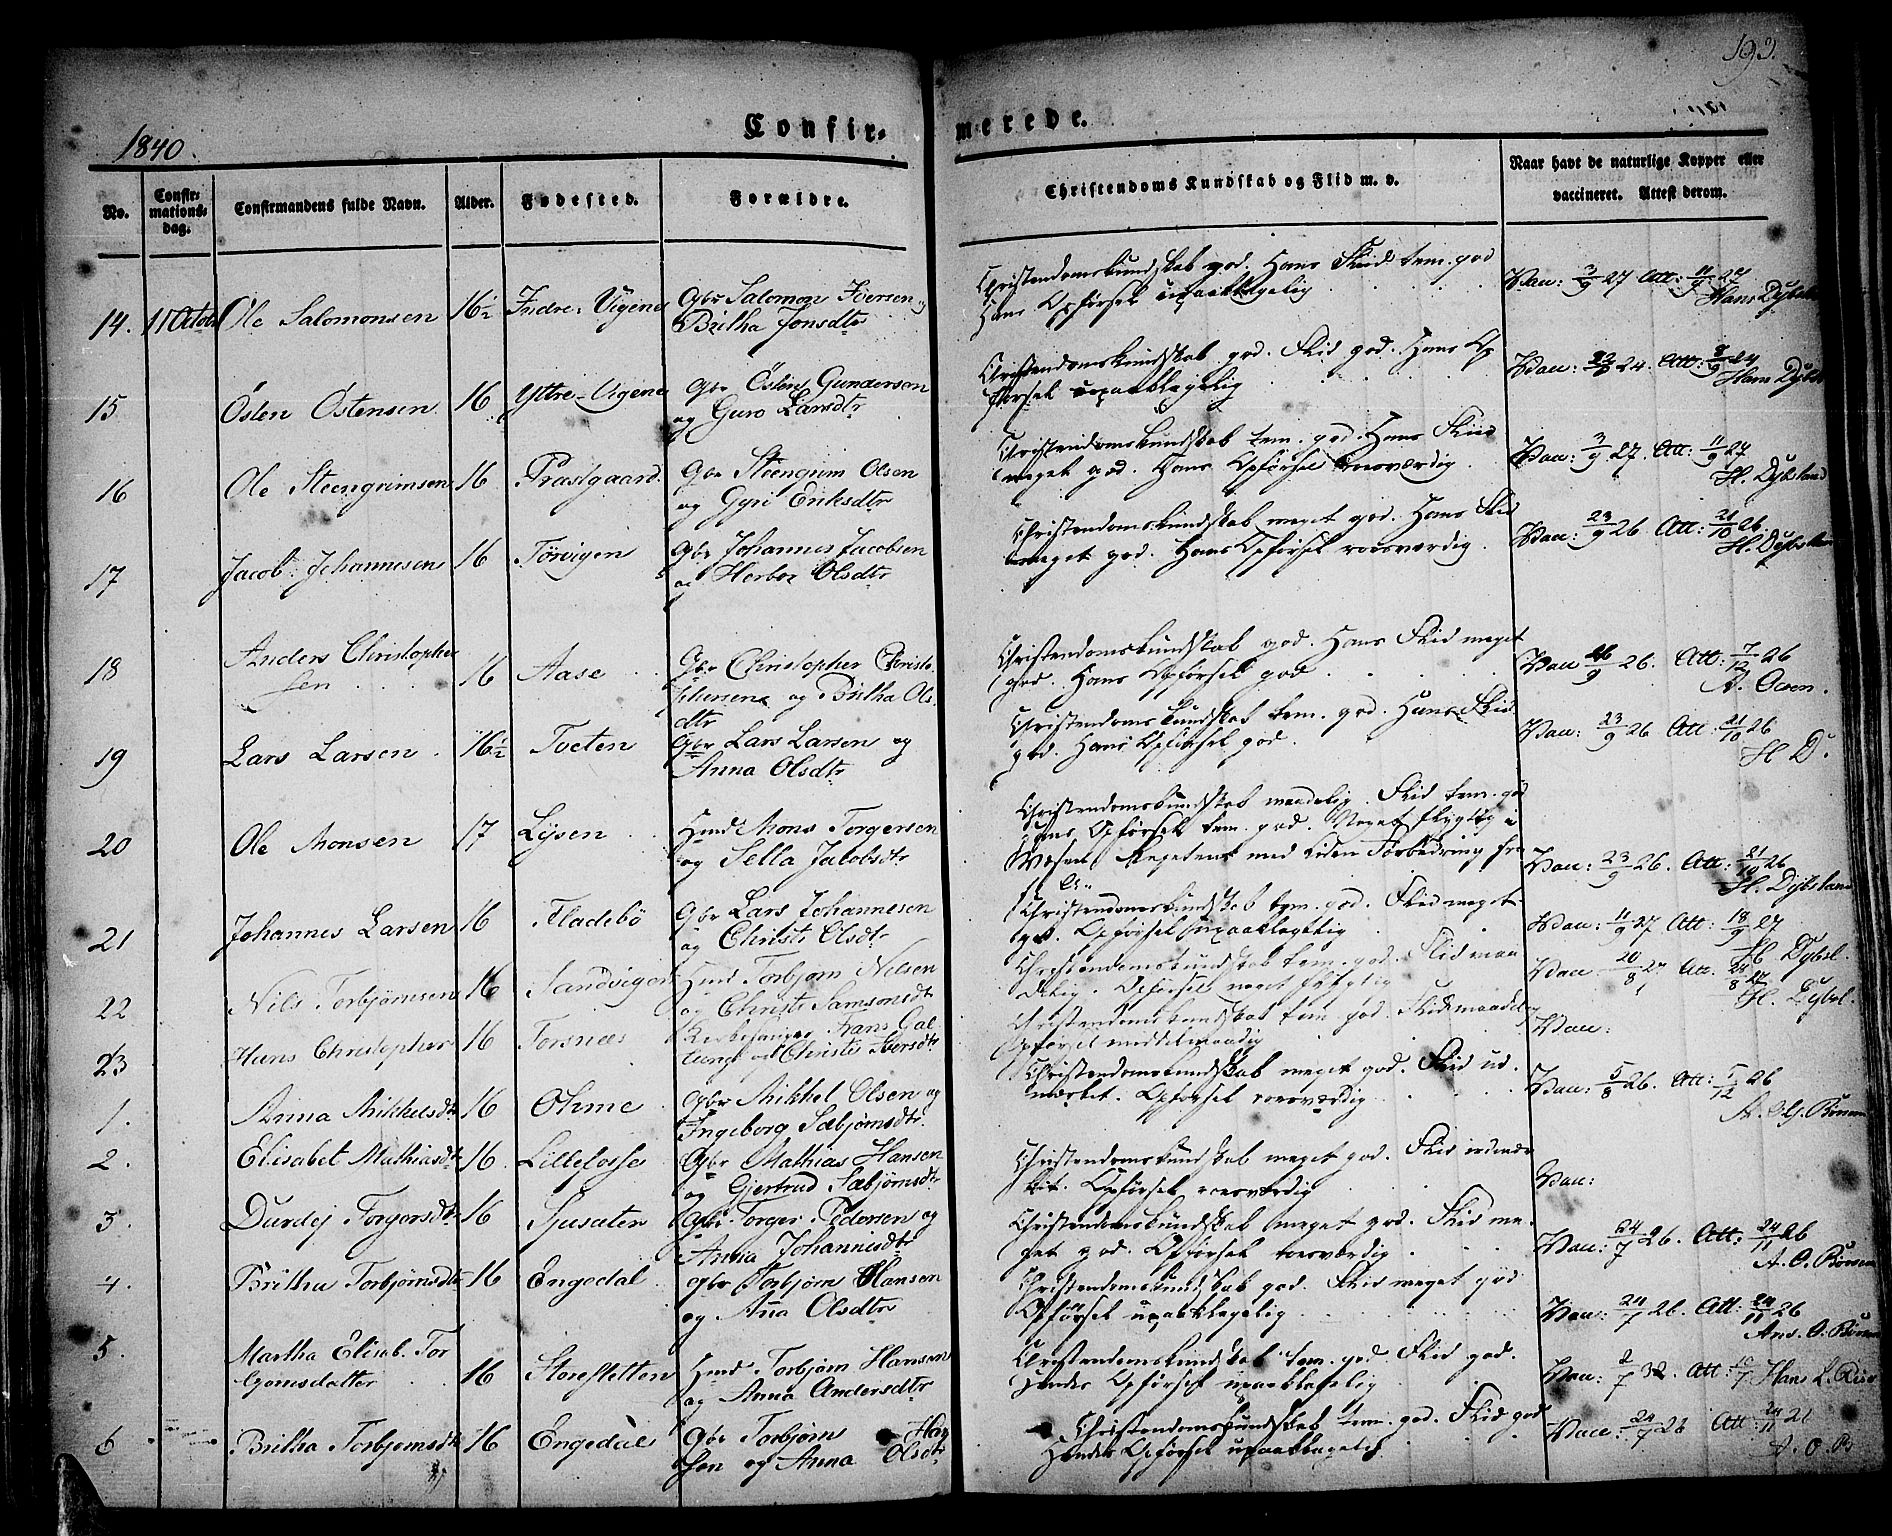 193.
1840.
Confir- merede.
No. Confirmations-dag. Confirmandens fulde Navn. Alder. Fødested. Forældre. Christendoms Kundskab og Flid m. v. Naar havt de naturlige Kopper eller vaccineret. Attest derom.
14. 11 Octobr Ole Salomonsen 16½ Indre-Vigene Gbr Salomon Iversen og
Britha Jonsdtr
Christendomskundskab god. Hans Flid tem. god
Hans Opførsel upaaklagelig
Vac: 3/9 27 Att: 11/9 27
Hans Dybsland
15 Østen Østensen 16 Yttre-Vigene Gbr Østen Gundersen
og Guro Larsdtr
Christendomskundskab god. Flid god. Hans Op
førsel upaaklagelig
Hans Dybsl
16 Ole Steengrimsen 16 Præstgaard. Gbr Steengrim Olsen
og Gyri Eriksdtr
Christendomskundskab tem. god. Hans Flid
meget god. Hans Opførsel roesværdig
Vac: 3/9 27. Att: 11/9 27
H. Dybsland
17 Jacob Johannesen 16 Tørvigen Gbr Johannes Jacobsen
og Herbor Olsdtr
Christendomskundskab meget god. Hans Flid
meget god. Hans Opførsel roesværdig
Vac: 23/9 26 Att: 21/10 26.
H. Dybsland
18 Anders Christopher
sen 16 Aase Gbr Christopher Christo
phersen og Britha Ols
dtr
Christendomskundskab god. Hans Flid meget
god. Hans Opførsel god
Vac 26/9 26. Att: 7/12 26
A. Olsen.
19 Lars Larsen 16½ Tveten Gbr Lars Larsen og
Anna Olsdtr
Christendomskundskab tem. god. Hans Flid
god. Hans Opførsel god.
Vac: 23/9 26 Att: 21/10 26
H D.
20 Ole Monsen 17 Lysen Hmd Mons Torgersen
og Sella Jacobsdtr
Christendomskundskab maadelig. Flid tem. god
Hans Opførsel tem. god. Noget flygtig i
Væsen. Repetent med liden Forbedring fra
Vac: 23/9 26. Att: 21/10 26
H. Dybsland
21 Johannes Larsen 16 Fladebø Gbr Lars Johannesen
og Christi Olsdtr
Christendomskundskab tem. god. Flid meget
god. Opførsel upaaklagelig
Vac: 11/9 27 Att: 18/9 27
H. Dybsl.
22 Nils Torbjørnsen 16 Sandvigen Hmd Torbjørn Nilsen
og Christi Samsonsdtr
Christendomskundskab tem. god. Flid maa
delig. Opførsel noget
Vac: 20/8 27 Att: 24/8 27
H. Dybsl.
23 Hans Christopher 16 Torsnæs Kirkesanger Frans Gal
tung og Christi Iversdtr
Christendomskundskab tem. god. Flid maadelig
Opførsel middelmaadig
Vac:
1. Anna Mikkelsdtr 16 Othme Gbr Mikkel Olsen og
Ingeborg Sæbjørnsdtr
Christendomskundskab meget god. Flid ud
mærket. Opførsel roesværdig
Vac: 5/8 26. Att: 5/12 26
2. Elisabet Mathiasdtr 16. Lillefosse Gbr Mathias Hansen
og Gjertrud Sæbjørnsdtr
Christendomskundskab meget god. Flid
Opførsel roesværdig
Vac:
3. Durdej Torgersdtr 16 Sjusæten Gbr Torger Pedersen og
Anna Johannisdtr
Christendomskundskab meget god. Flid me
get god. Opførsel roesværdig
Vac: 24/7 26. Att: 24/11 26
A. O. Børsem
4. Britha Torbjørnsdtr 16 Engedal Gbr Torbjørn Hansen
og Aña Olsdtr
Christendomskundskab god. Flid meget god
Opførsel upaaklagelig
Vac: 24/7 26. Att: 24/11 26
5. Martha Elisab. Tor
bjørnsdatter 16 Storesletten Hmd Torbjørn Hansen
og Anna Andersdtr
Christendomskundskab tem. god. Flid god.
Hendes Opførsel upaaklagelig
Vac: 2/7 32. Att: 10/7 Hans L.
6 Britha Torbjørnsdtr 16 Engedal Gbr Torbjørn Han
sen og Anna Olsdtr
Christendomskundskab tem. god. Flid god
Hendes Opførsel upaaklagelig
Vacc: 24/7 26 Att: 24/11 26
A. O. B